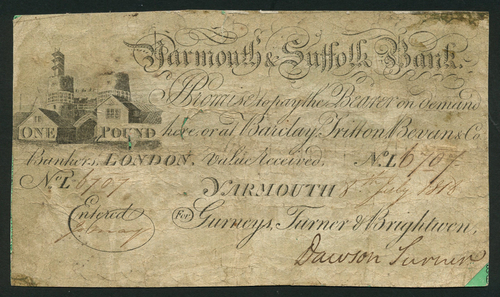 Yarmouth & Suffolk Bank.
I Promise to pay the Bearer on demand
ONE POUND
here, or at Barclay, Tritton, Bevan & Co.
Bankers, LONDON. Value Received.
No. L 6707
No. L 6707
YARMOUTH 8 July 1818
Entered
For Gurneys, Turner & Brightwen,
Dawson Turner